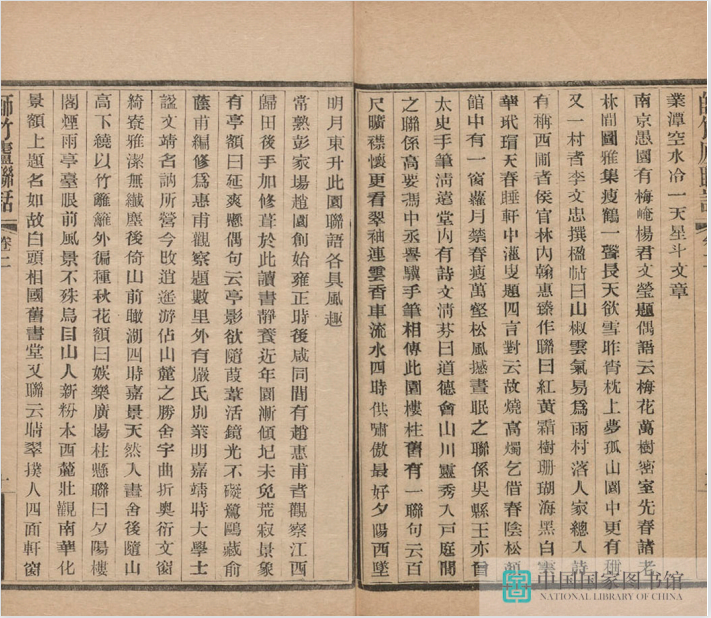 業潭空水冷一天星斗文章
南京愚園有梅崦楊君文瑩題偶語云梅花萬樹密室先春諸老
林間園雅集瘦鶴一聲長天欲雪昨宵枕上夢孤山園中更有
又一村者李文忠撰楹帖曰山椒雲氣易為雨村落人家總入詩
有稱西圃者侯官林內翰惠臻作聯曰紅黃霜樹珊瑚海黑白雲
華玳瑁天春睡軒中灌叟題四言對云故燒高燭乞借春陰松
館中有一窗蘿月縈春瘦萬壑松風撼晝眠之聯係吳縣王亦曾
太史手筆淸遠堂內有詩文淸芬曰道德會山川靈秀入戶庭閒
之聯係高要馮中丞譽驥手筆相傳此園樓柱舊有一聯句云百
尺曠襟懷更看翠袖連雲香車流水四時供嘯傲最好夕陽西墜
明月東升此園聯語各具風趣
常熟彭家場趙園創始雍正時後咸同間有趙惠甫者觀察江西
歸田後手加修葺於此讀書靜養近年園漸傾圮未免荒寂景象
有亭額曰延爽懸偶句云亭影欲隨葭葦活鏡光不礙驚鷗藏俞
蔭甫編修爲惠甫觀察題數里外有嚴氏別業明嘉靖時大學士
諡文靖名訥所營今改逍遙游佔山麓之勝舍宇曲折奧衍文窗
綺寮雅潔無纖塵後倚山前瞰湖四時嘉景天然入畫舍後隨山
高下繞以竹籬籬外徧種秋花額曰娛樂廣場柱懸聯曰夕陽樓
閣煙雨亭臺眼前風景不殊烏目山人新粉本西麓壯觀南華化
景額上題名如故白頭相國舊書堂又聯云晴翠撲人四面軒窗
師竹廬聯話
卷二
一
中国国家图书馆
NATIONAL LIBRARY OF CHINA